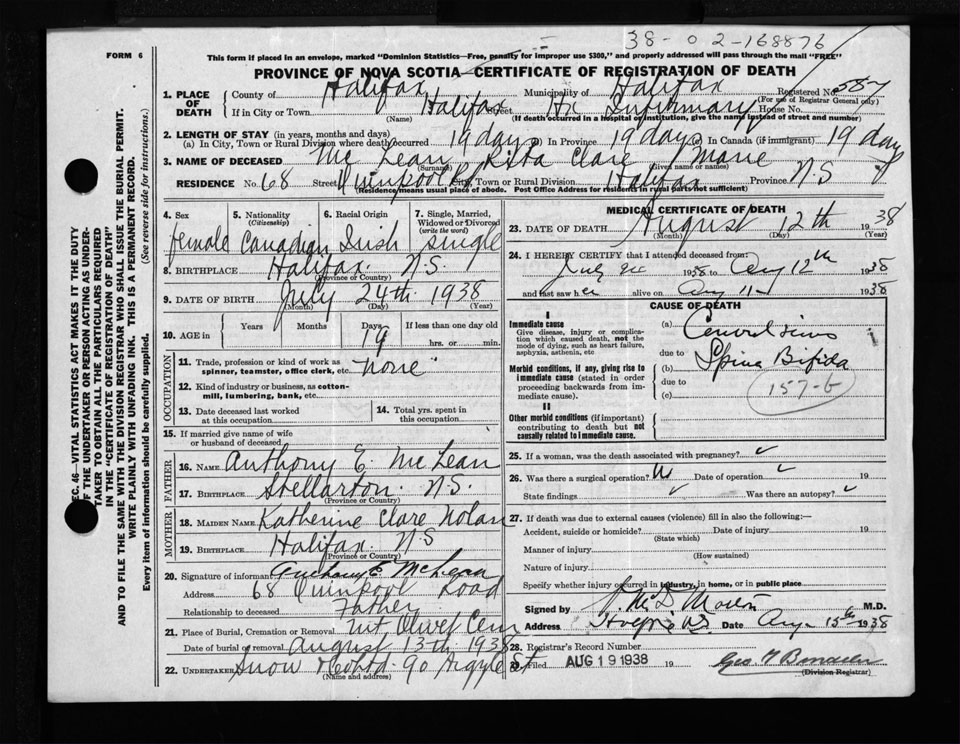 38-02-168876
FORM 6
This form if placed in an envelope, marked "Dominion Statistics—Free, penalty for improper use $300," and properly addressed will pass through the mail "FREE"
PROVINCE OF NOVA SCOTIA—CERTIFICATE OF REGISTRATION OF DEATH
1. PLACE OF DEATH County of Halifax Municipality of Halifax Registered No. 557
(For use of Registrar General only)
If in City or Town Halifax Street Hx Infirmary House No.
(Name) (If death occurred in a hospital or institution, give the name instead of street and number)
2. LENGTH OF STAY (in years, months and days)
(a) In City, Town or Rural Division where death occurred 19 days (b) In Province 19 days (c) In Canada (if immigrant) 19 day
3. NAME OF DECEASED Mc Lean Rita Clare Marie
(Surname) (Given name or names)
RESIDENCE No. 68 Street Quinpool Rd City, Town or Rural Division Halifax Province N.S
(Residence means usual place of abode. Post Office Address for residents in rural parts not sufficient)
4. Sex female
5. Nationality (Citizenship) Canadian
6. Racial Origin Irish
7. Single, Married, Widowed or Divorced (write the word) single
8. BIRTHPLACE Halifax N.S.
(Province or Country)
9. DATE OF BIRTH July 24th 1938
(Month) (Day) (Year)
10. AGE in Years Months Days 19 If less than one day old
hrs. or min.
OCCUPATION
11. Trade, profession or kind of work as spinner, teamster, office clerk, etc. none
12. Kind of industry or business, as cotton-mill, lumbering, bank, etc.
13. Date deceased last worked at this occupation
14. Total yrs. spent in this occupation
15. If married give name of wife or husband of deceased
FATHER
16. NAME Anthony E. Mc Lean
17. BIRTHPLACE Stellarton N.S.
(Province or Country)
MOTHER
18. MAIDEN NAME Katherine Clare Nolan
19. BIRTHPLACE Halifax N.S
(Province or Country)
20. Signature of informant Anthony E McLean
Address 68 Quinpool Road
Relationship to deceased Father
21. Place of Burial, Cremation or Removal Mt Olivet Cem
Date of burial or removal August 13th 1938
22. UNDERTAKER Snow & Co Ltd. 90 Argyle St
(Name and address)
MEDICAL CERTIFICATE OF DEATH
23. DATE OF DEATH August 12th 1938
(Month) (Day) (Year)
24. I HEREBY CERTIFY that I attended deceased from:
July 1938 to Aug 12th 1938
and last saw her alive on Aug 11 1938
CAUSE OF DEATH
I
Immediate cause
Give disease, injury or complication which caused death, not the mode of dying, such as heart failure, asphyxia, asthenia, etc
Morbid conditions, if any, giving rise to immediate cause (stated in order proceeding backwards from immediate cause).
II
Other morbid conditions (if important) contributing to death but not causally related to immediate cause.
(a) Convulsions
due to
(b) Spina Bifida
due to
(c) 157-G
25. If a woman, was the death associated with pregnancy?
26. Was there a surgical operation? Date of operation
State findings Was there an autopsy?
27. If death was due to external causes (violence) fill in also the following:—
Accident, suicide or homicide? Date of injury 19
(State which)
Manner of injury
(How sustained)
Nature of injury
Specify whether injury occurred in industry, in home, or in public place
Signed by M.D.
Address Date Aug 15 1938
28. Registrar's Record Number
29. Filed AUG 19 1938 19
(Division Registrar)
SEC. 46—VITAL STATISTICS ACT MAKES IT THE DUTY OF THE UNDERTAKER OR PERSON ACTING AS UNDERTAKER TO OBTAIN ALL THE PARTICULARS REQUIRED IN THE "CERTIFICATE OF REGISTRATION OF DEATH"
AND TO FILE THE SAME WITH THE DIVISION REGISTRAR WHO SHALL ISSUE THE BURIAL PERMIT.
WRITE PLAINLY WITH UNFADING INK. THIS IS A PERMANENT RECORD.
Every item of information should be carefully supplied. (See reverse side for instructions.)